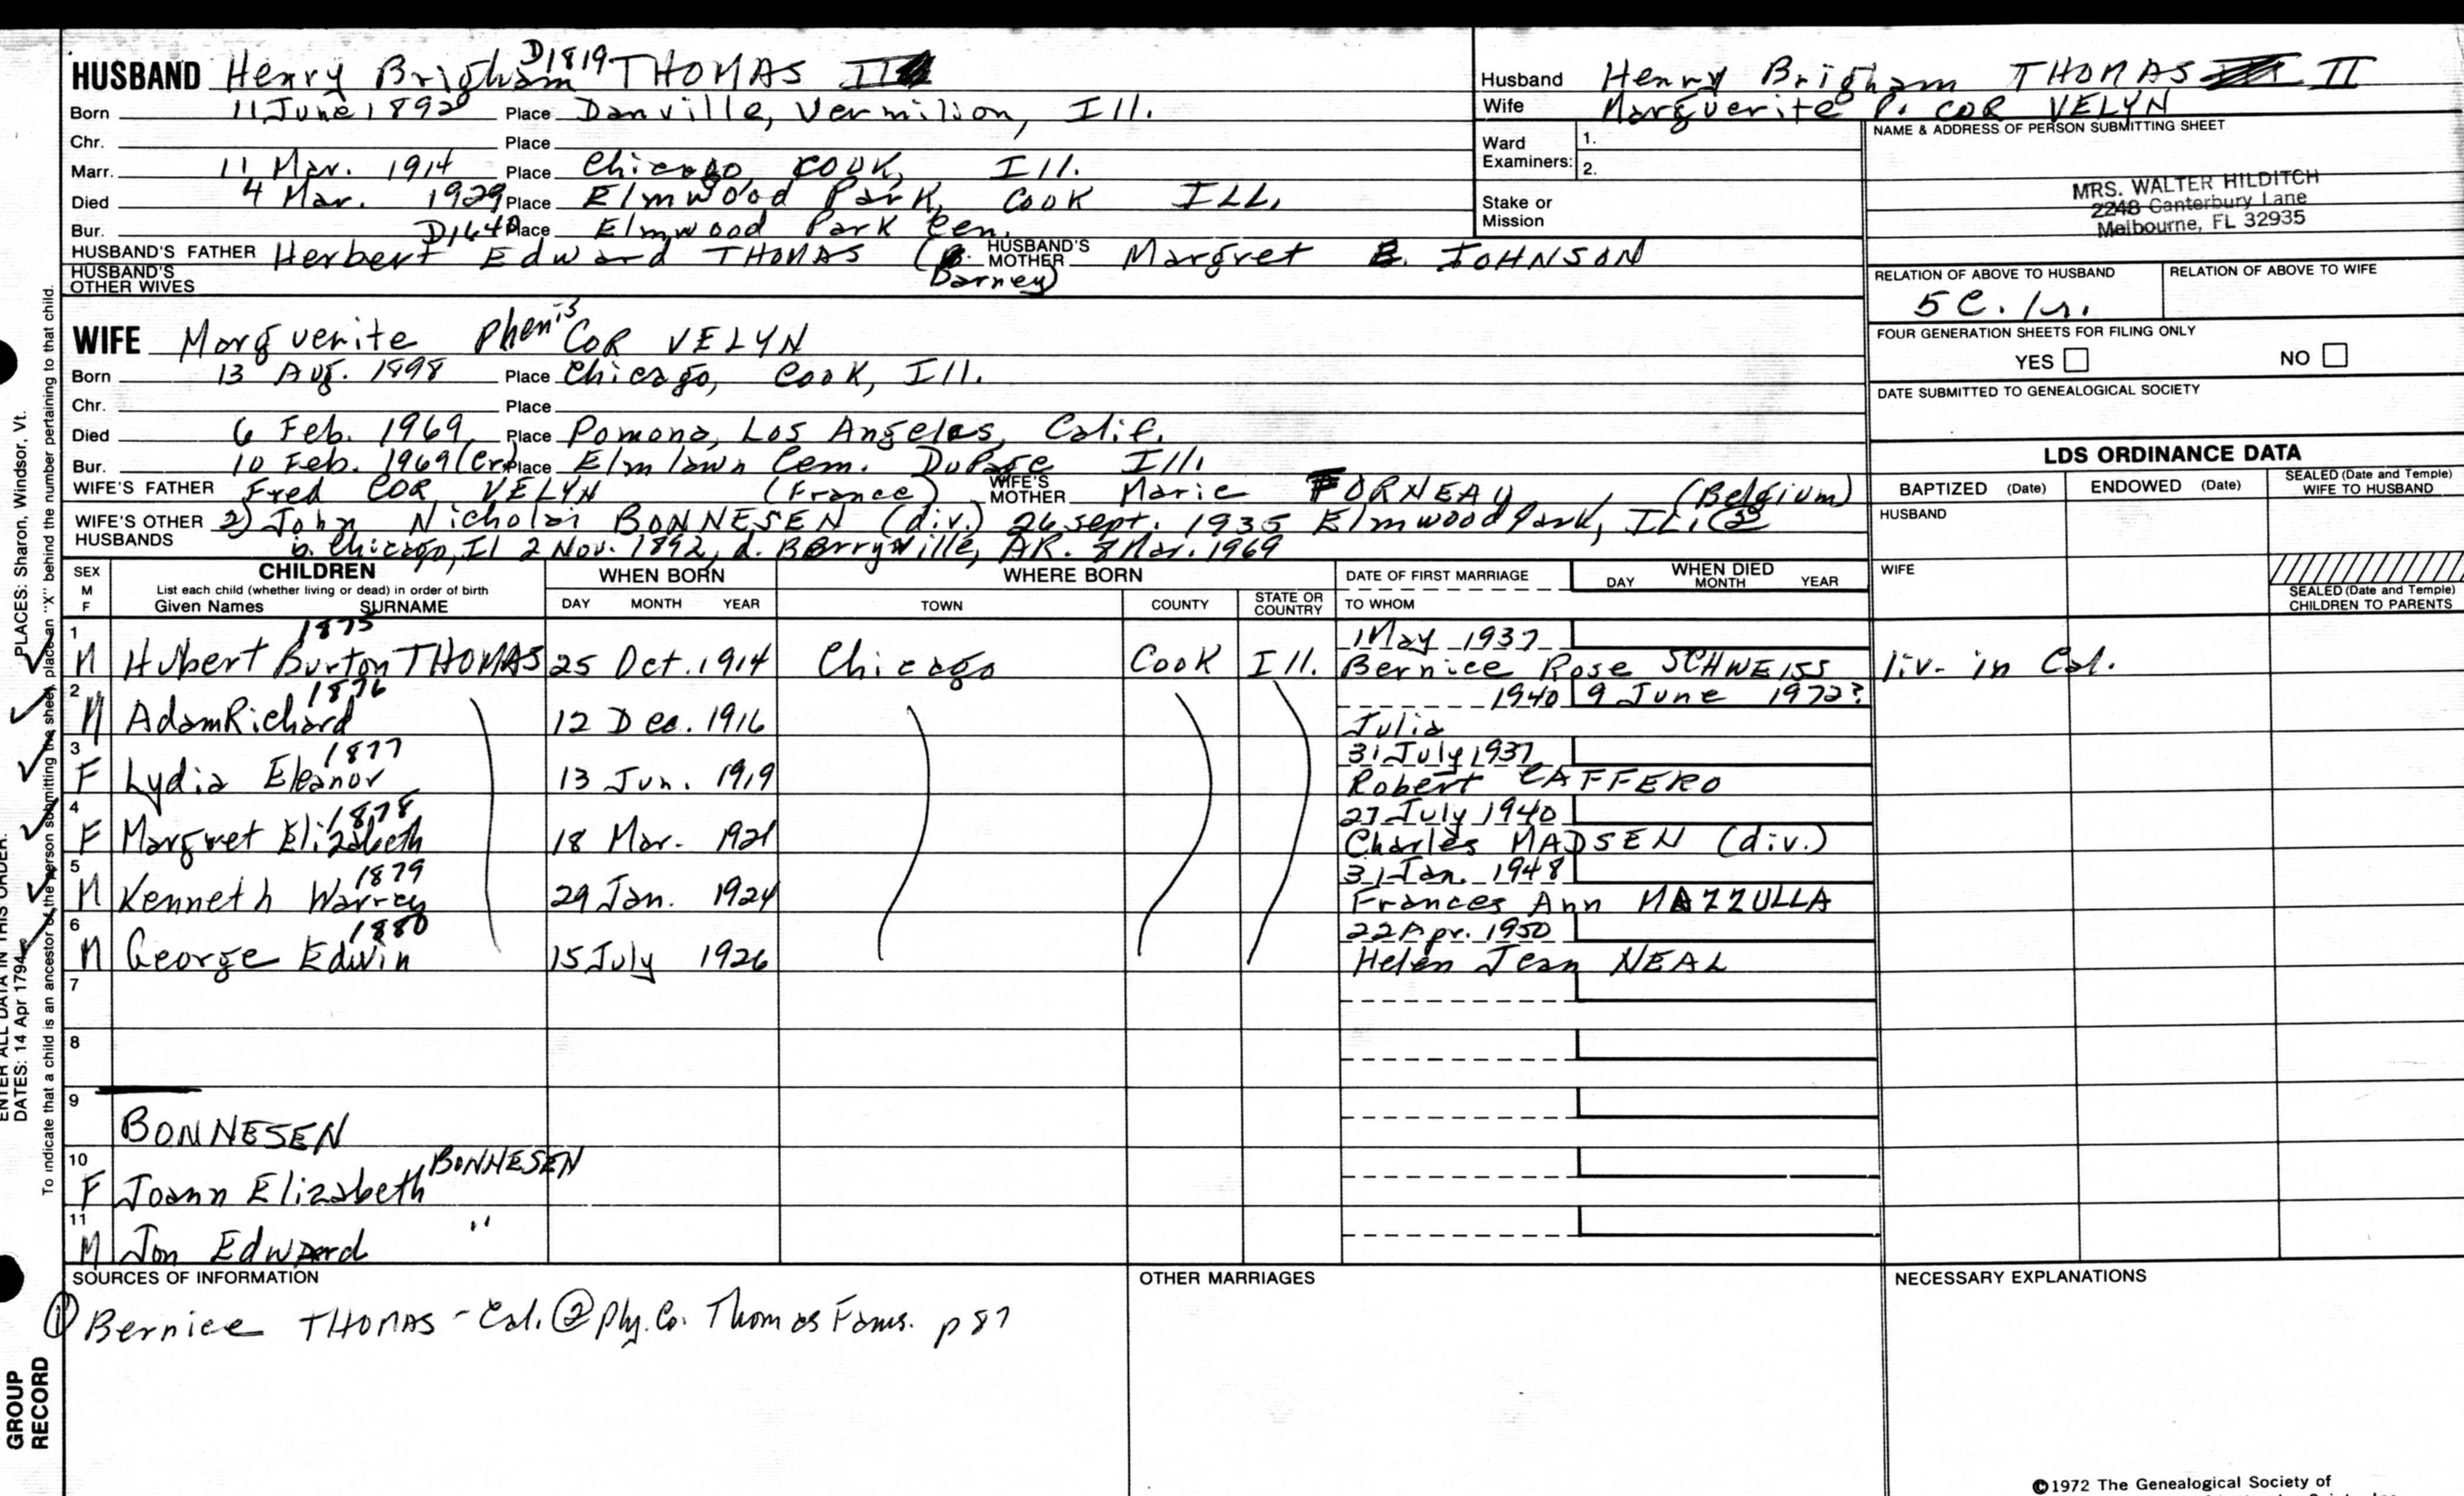 HUSBAND Henry Brigham D1819 THOMAS II
Born 11 June 1892 Place Danville, Vermilion, Ill.
Chr. Place
Marr. 11 Mar. 1914 Place Chicago, COOK, Ill.
Died 4 Mar. 1929 Place Elmwood Park, Cook ILL.
Bur. Place Elmwood Park Cem.
HUSBAND'S FATHER Herbert Edward THOMAS D1640 HUSBAND'S MOTHER Margret B. JOHNSON
(Barney)
HUSBAND'S OTHER WIVES
Husband Henry Brigham THOMAS II
Wife Marguerite P. COR VELYN
Ward Examiners: 1.
2.
Stake or Mission
NAME & ADDRESS OF PERSON SUBMITTING SHEET
MRS. WALTER HILDITCH
2248 Canterbury Lane
Melbourne, FL 32935
RELATION OF ABOVE TO HUSBAND RELATION OF ABOVE TO WIFE
5 C. 1 r.
FOUR GENERATION SHEETS FOR FILING ONLY
YES NO
DATE SUBMITTED TO GENEALOGICAL SOCIETY
WIFE Marguerite Phenis COR VELYN
Born 13 Aug. 1898 Place Chicago, Cook, Ill.
Chr. Place
Died 6 Feb. 1969 Place Pomona, Los Angeles, Calif.
Bur. 10 Feb. 1969 (Cr) Place Elmlawn Cem. DuPage Ill.
WIFE'S FATHER Fred COR VELYN (France) WIFE'S MOTHER Marie FORNEAU, (Belgium)
WIFE'S OTHER HUSBANDS 2) John Nicholai BONNESEN (div.) 26 Sept. 1935 Elmwood Park, IL.
b. Chicago, Il 2 Nov. 1892, d. Berryville, AR. 8 Mar. 1969
LDS ORDINANCE DATA
BAPTIZED (Date) ENDOWED (Date) SEALED (Date and Temple) WIFE TO HUSBAND
HUSBAND
WIFE
SEALED (Date and Temple) CHILDREN TO PARENTS
SEX M F CHILDREN List each child (whether living or dead) in order of birth Given Names SURNAME WHEN BORN DAY MONTH YEAR WHERE BORN TOWN COUNTY STATE OR COUNTRY DATE OF FIRST MARRIAGE TO WHOM WHEN DIED DAY MONTH YEAR
1 1875 1 May 1937
M Hubert Burton THOMAS 25 Oct. 1914 Chicago Cook Ill. Bernice Rose SCHWEISS liv. in Cal.
2 1876 1940 9 June 1972?
M Adam Richard 12 Dec. 1916 Julia
3 1877 31 July 1937
F Lydia Eleanor 13 Jun. 1919 Robert CAFFERO
4 1878 27 July 1940
F Margret Elizabeth 18 Mar. 1921 Charles MADSEN (div.)
5 1879 31 Jan. 1948
M Kenneth Warren 29 Jan. 1924 Frances Ann MAZZULLA
6 1880 22 Apr. 1950
M George Edwin 15 July 1926 Helen Jean NEAL
7
8
9
BONNESEN
10
F Joann Elizabeth BONNESEN
11
M Jon Edward "
SOURCES OF INFORMATION
① Bernice THOMAS - Cal. ② Ply. Co. Thomas Fams. p 87
OTHER MARRIAGES
NECESSARY EXPLANATIONS
©1972 The Genealogical Society of
PLACES: Sharon, Windsor, Vt.
ENTER ALL DATA IN THIS ORDER:
DATES: 14 Apr 1794
To indicate that a child is an ancestor of the person submitting the sheet, place an "X" behind the number pertaining to that child.
GROUP
RECORD